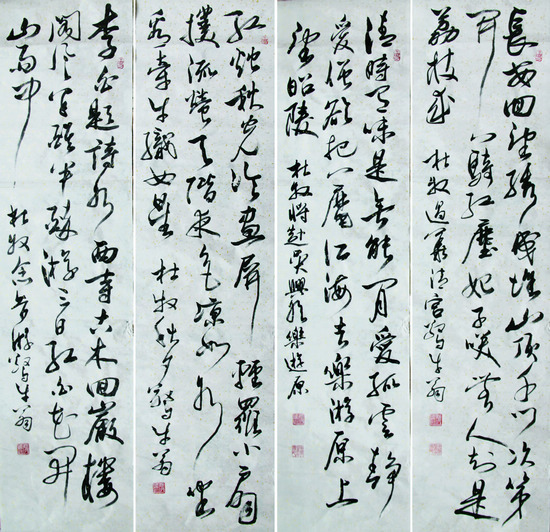 長安回望繡成堆山頂千門次第
開一騎紅塵妃子咲無人知是
荔枝來 杜牧過華清宮 牛翁
清時有味是無能閒愛孤雲靜
愛僧欲把一麾江海去樂游原上
望昭陵 杜牧將赴吳興登樂遊原
紅燭秋光冷畫屏輕羅小扇
撲流螢天階夜色涼如水坐
看牽牛織女星 杜牧秋夕 牛翁
李白題詩水西寺古木回巖樓
閣風半醒半醉游三日紅白花開
山雨中 杜牧念昔游 牛翁